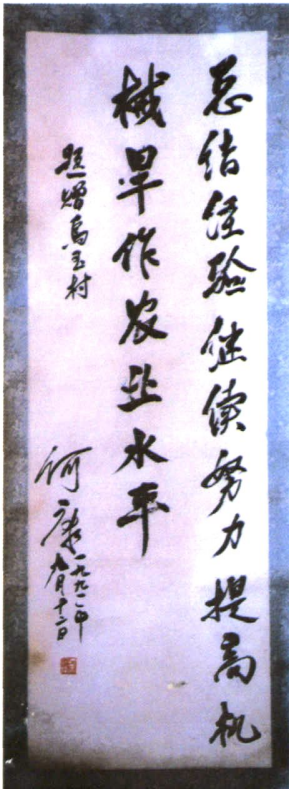 总结经验继续努力提高机
械旱作农业水平
题赠乌玉村
何康
一九九一年
九月十二日